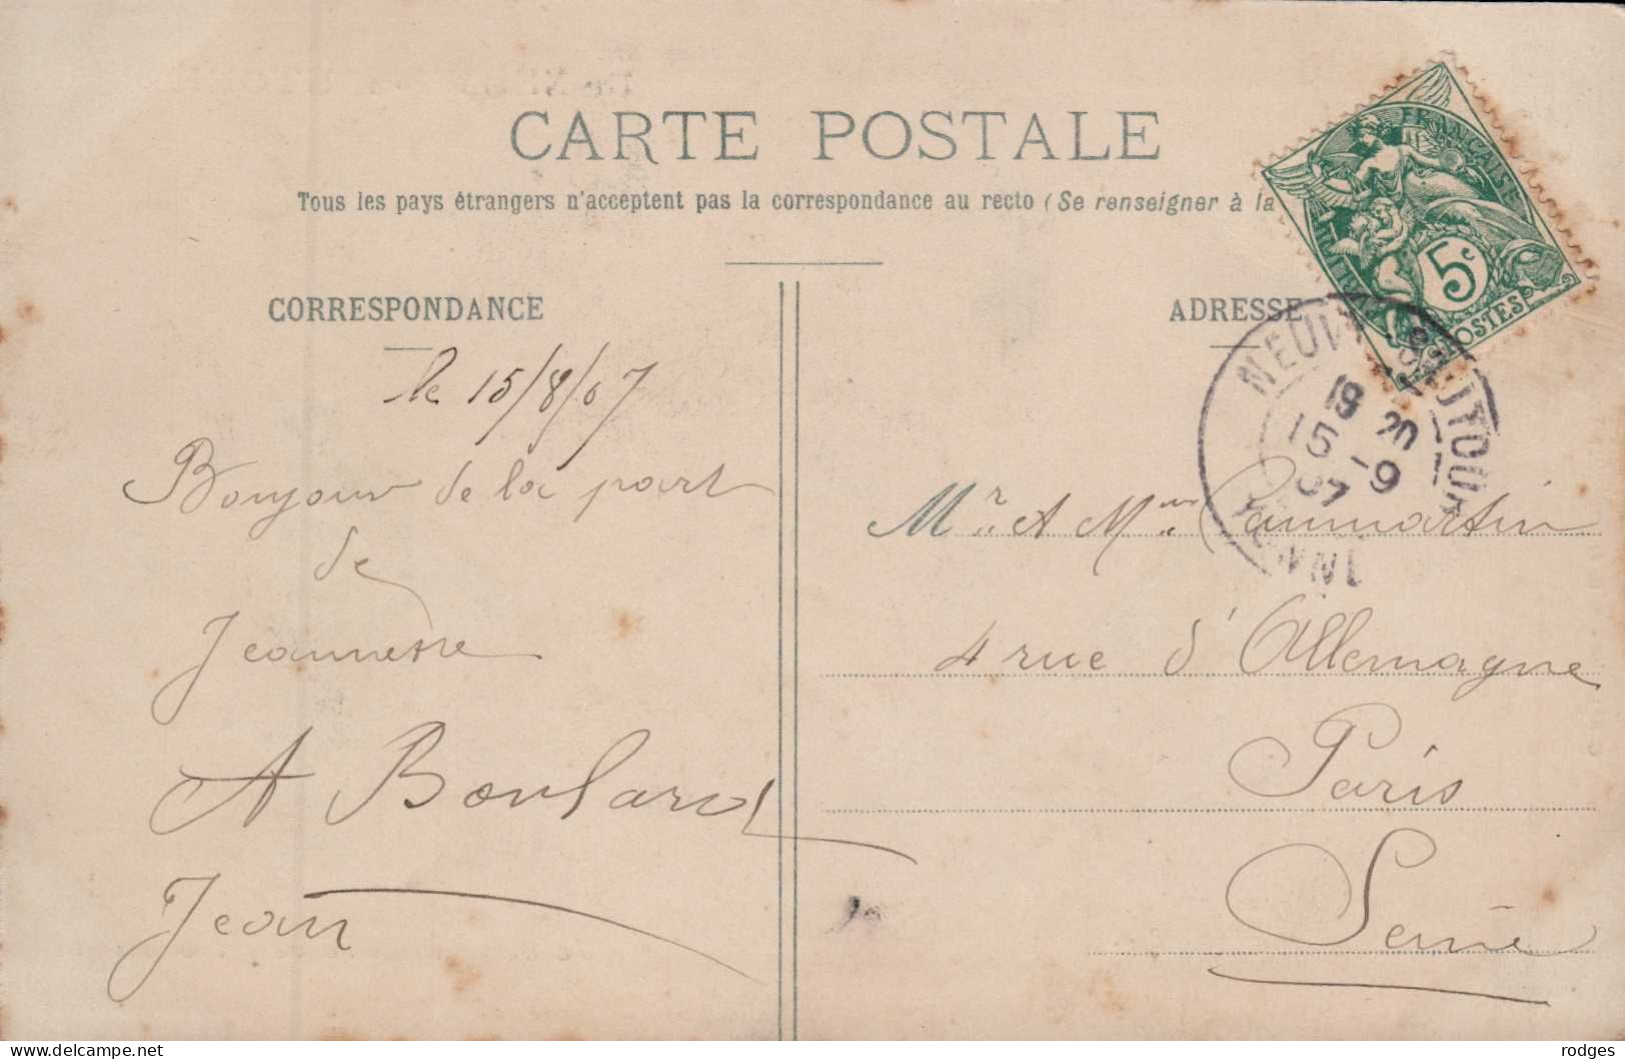 CARTE POSTALE
Tous les pays étrangers n'acceptent pas la correspondance au recto (Se renseigner à la
CORRESPONDANCE
ADRESSE
FRANÇAISE
5c
POSTES
NEUVY SAUTOUR
18 20
15 -9
07
YONNE
le 15/8/07
Bonjour de la part
de
Jeannette
A Boulard
Jean
Mr et Mme Caumartin
4 rue d'Allemagne
Paris
Seine
rodges